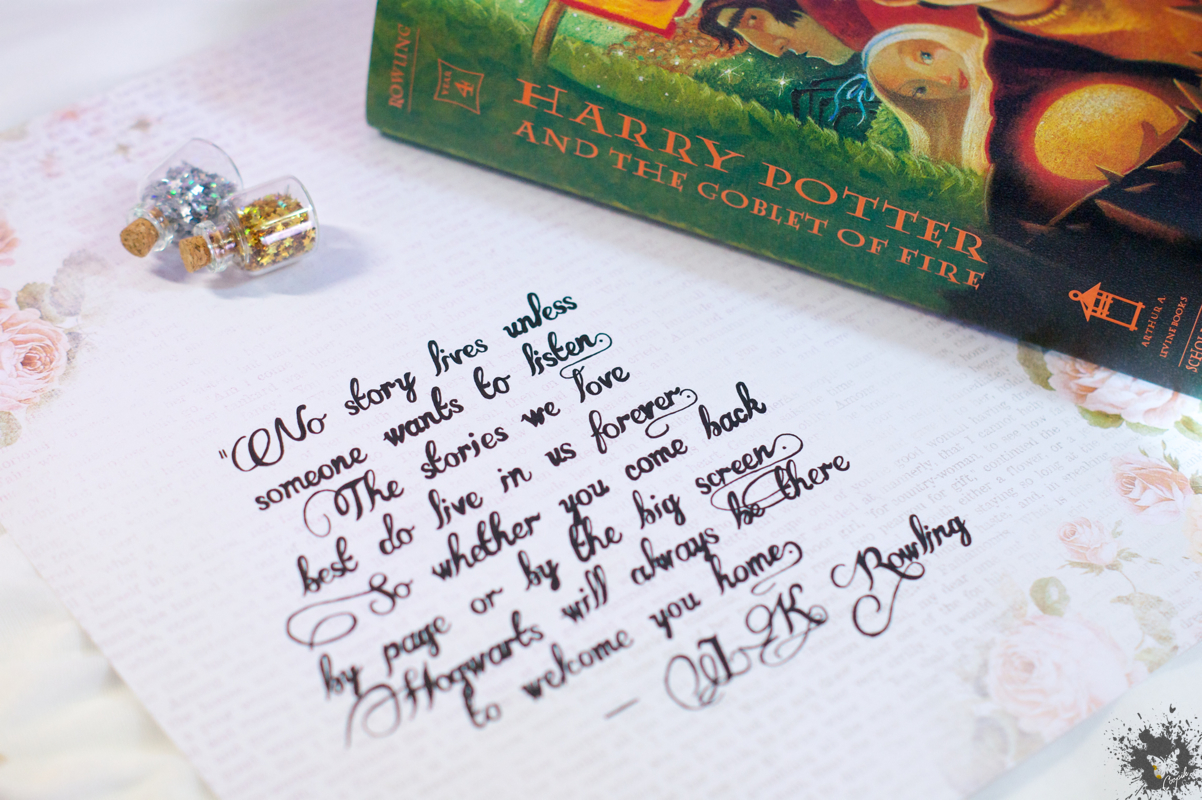 ROWLING
YEAR
4
HARRY POTTER
AND THE GOBLET OF FIRE
ARTHUR A.
LEVINE BOOKS
"No story lives unless
someone wants to listen.
The stories we love
best do live in us forever.
So whether you come back
by page or by the big screen.
Hogwarts will always be there
to welcome you home.
— J K Rowling